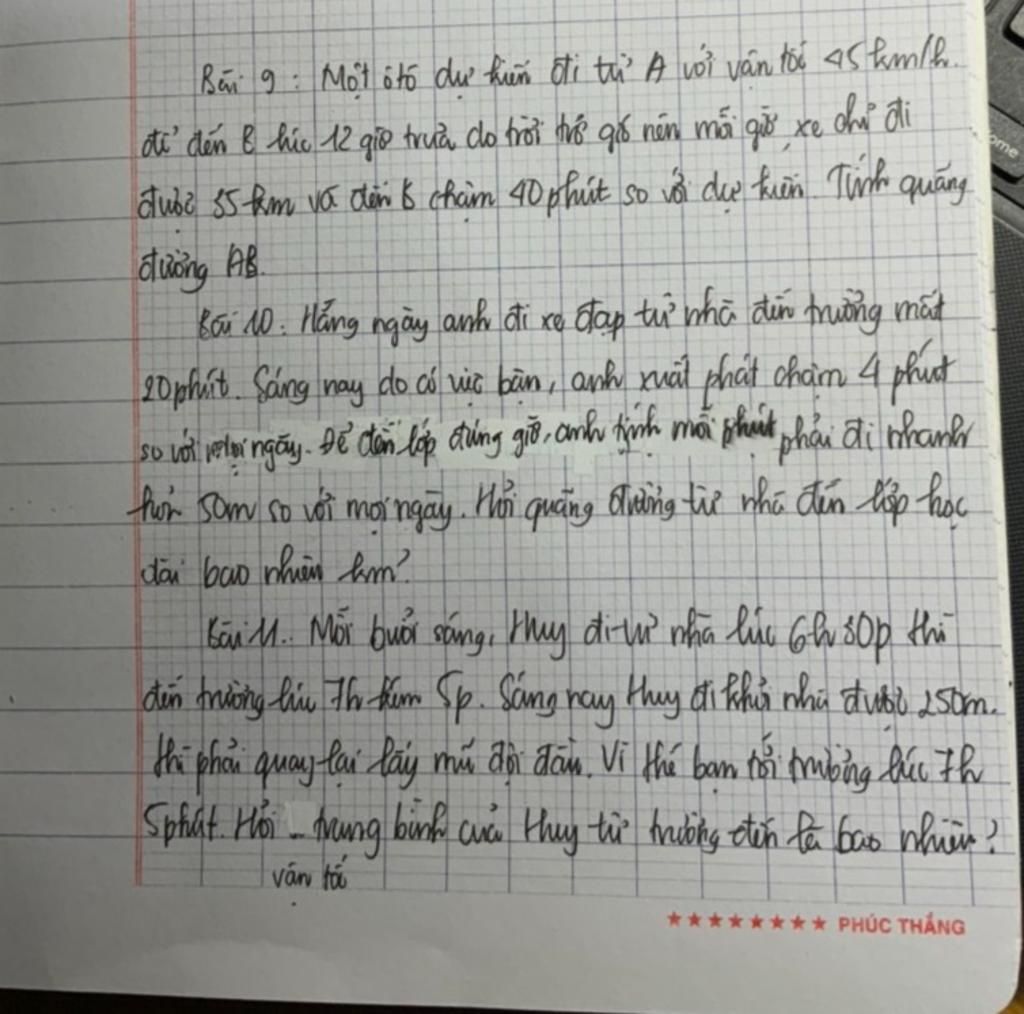 Bài 9 : Một ôtô dự kiến đi từ A với vận tốc 45 km/h.
để đến B lúc 12 giờ trưa do trời trở gió nên mỗi giờ xe chỉ đi
được 35 km và đến B chậm 40 phút so với dự kiến. Tính quãng
đường AB.
Bài 10 : Hằng ngày anh đi xe đạp từ nhà đến trường mất
20 phút. Sáng nay do có việc bận, anh xuất phát chậm 4 phút
so với mọi ngày. Để đến lớp đúng giờ, anh tính mỗi phút phải đi nhanh
hơn 50m so với mọi ngày. Hỏi quãng đường từ nhà đến lớp học
dài bao nhiêu km?
Bài 11. Mỗi buổi sáng, Huy đi từ nhà lúc 6h 30p thì
đến trường lúc 7h kém 5p. Sáng nay Huy đi khỏi nhà được 250m.
thì phải quay lại lấy mũ đội đầu. Vì thế bạn tới trường lúc 7h
5 phút. Hỏi _ trung bình của Huy từ trường đến là bao nhiêu?
vận tốc
★★★★★★★★ PHÚC THẮNG